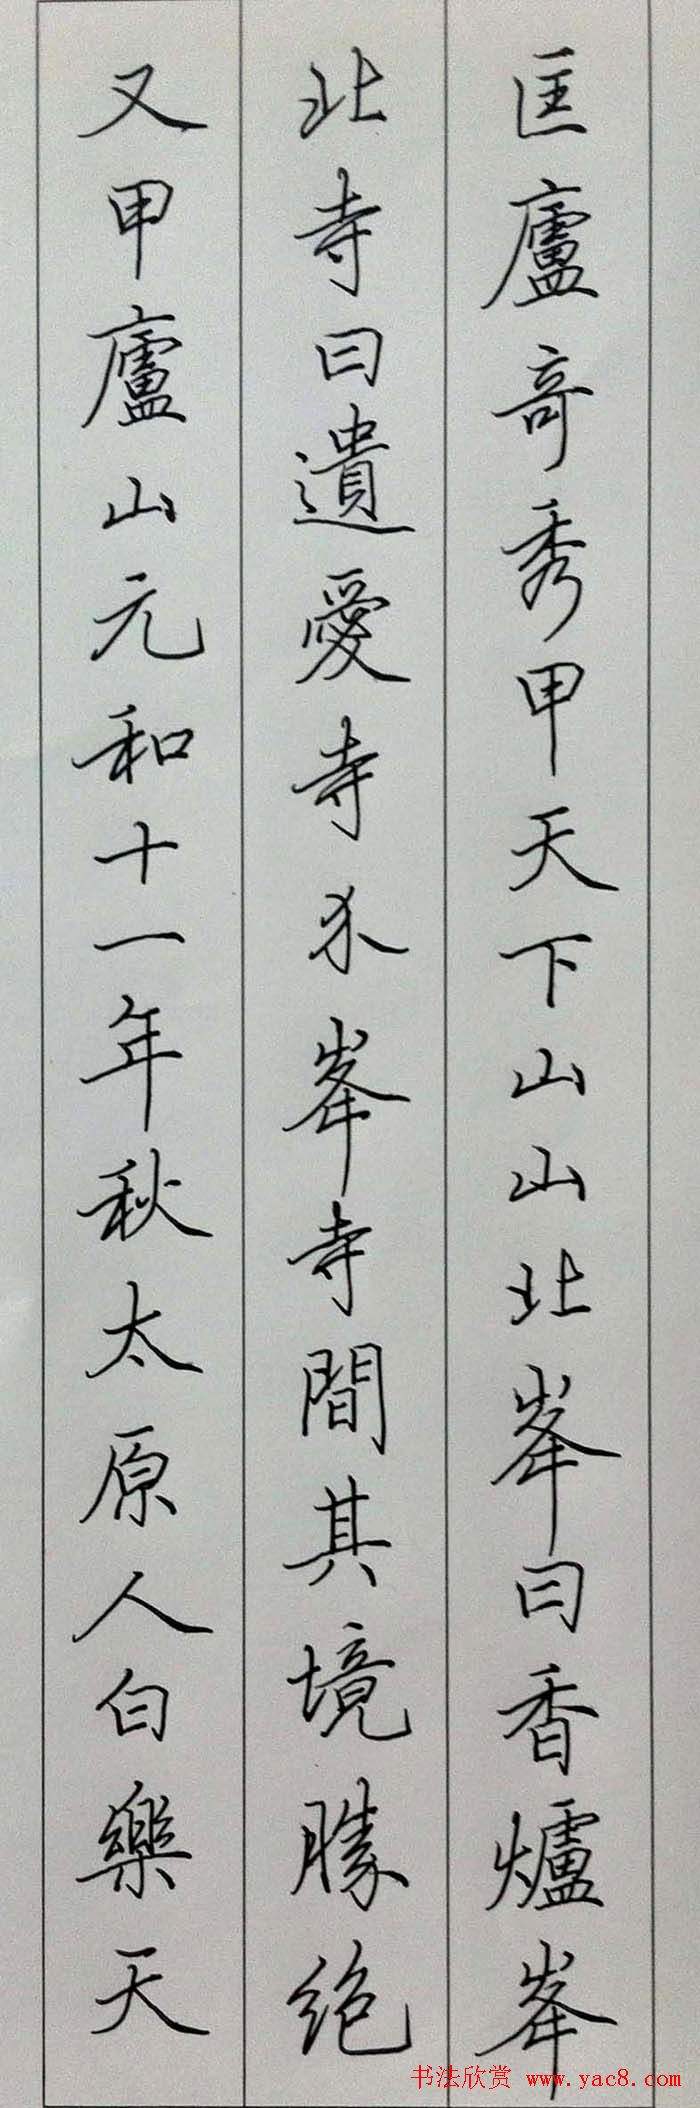 匡廬奇秀甲天下山山北峯曰香爐峯
北寺曰遺愛寺介峯寺間其境勝絶
又甲廬山元和十一年秋太原人白樂天
书法欣赏 www.yac8.com